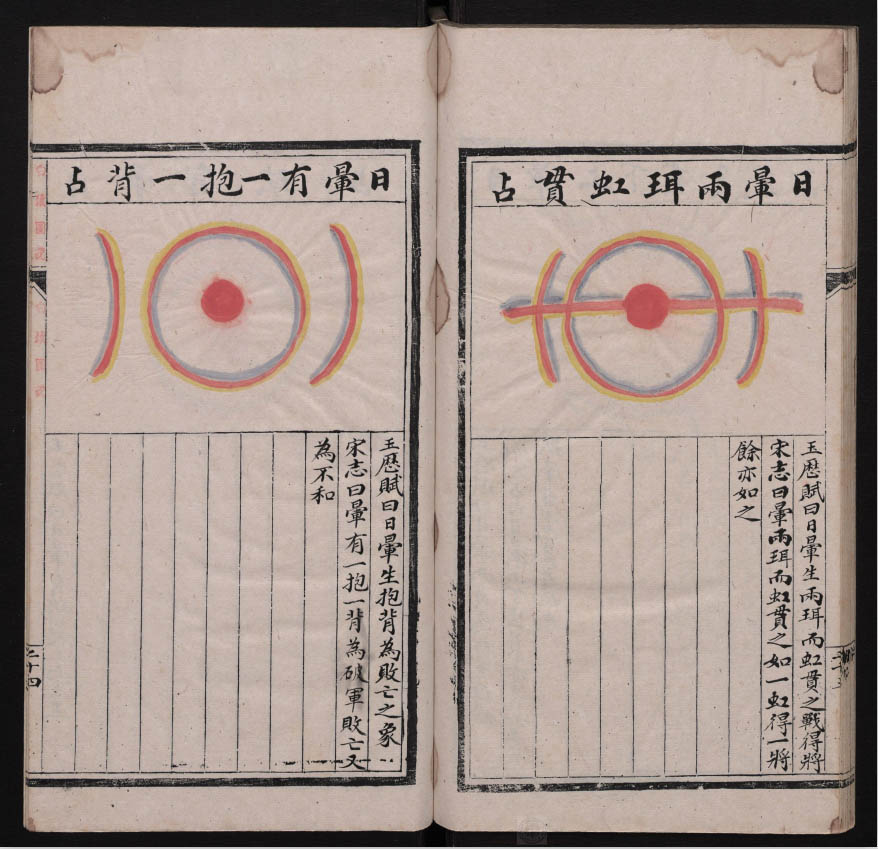 日暈兩珥虹貫占
玉歷賦曰日暈生兩珥而虹貫之戰得將
宋志曰暈兩珥而虹貫之如一虹得一將
餘亦如之
日暈有一抱一背占
玉歷賦曰日暈生抱背為敗亡之象
宋志曰暈有一抱一背為破軍敗亡又
為不和
二十四